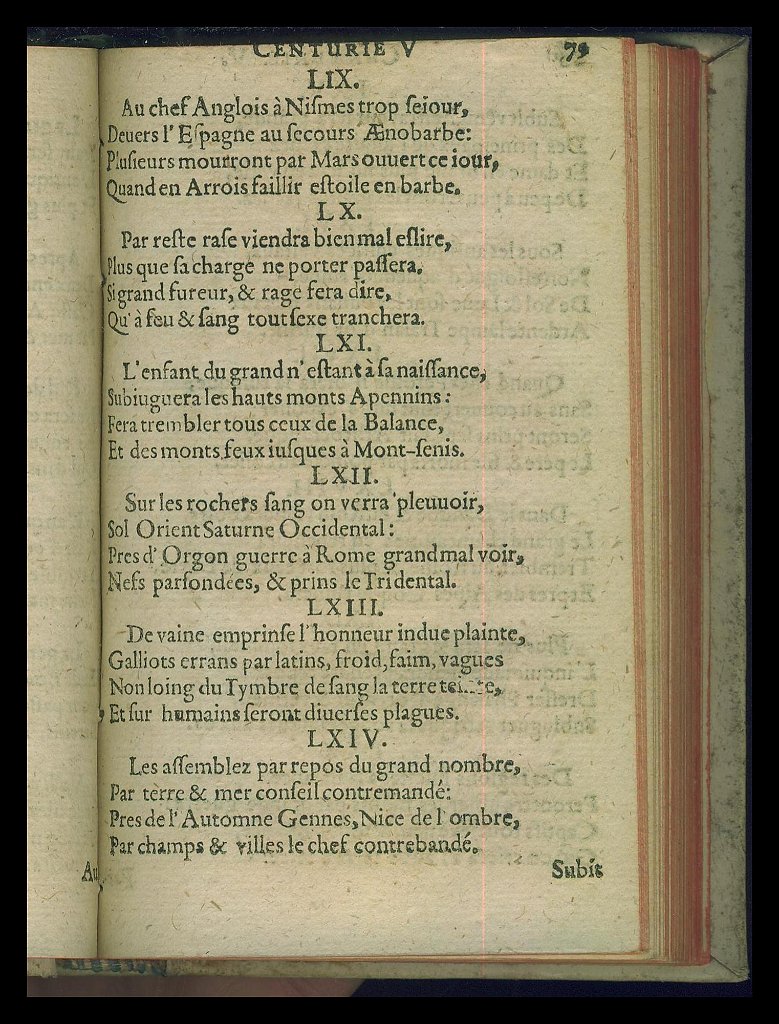 CENTURIE V 79
LIX.
Au chef Anglois à Niſmes trop ſeiour,
Deuers l'Eſpagne au ſecours Ænobarbe:
Pluſieurs mourront par Mars ouuert ce iour,
Quand en Arrois faillir eſtoile en barbe.
LX.
Par reſte raſe viendra bien mal eſlire,
Plus que ſa charge ne porter paſſera.
Si grand fureur, & rage fera dire,
Qu'à feu & ſang tout ſexe tranchera.
LXI.
L'enfant du grand n'eſtant à ſa naiſſance,
Subiuguera les hauts monts Apennins:
Fera trembler tous ceux de la Balance,
Et des monts feux iuſques à Mont-ſenis.
LXII.
Sur les rochers ſang on verra pleuuoir,
Sol Orient Saturne Occidental:
Pres d'Orgon guerre à Rome grand mal voir,
Nefs parfondées, & prins le Tridental.
LXIII.
De vaine emprinſe l'honneur indue plainte,
Galliots errans par latins, froid, faim, vagues
Non loing du Tymbre de ſang la terre
Et ſur humains ſeront diuerſes plagues.
LXIV.
Les aſſemblez par repos du grand nombre,
Par terre & mer conſeil contremandé:
Pres de l'Automne Gennes, Nice de l'ombre,
Par champs & villes le chef contrebandé.
Au
Subit